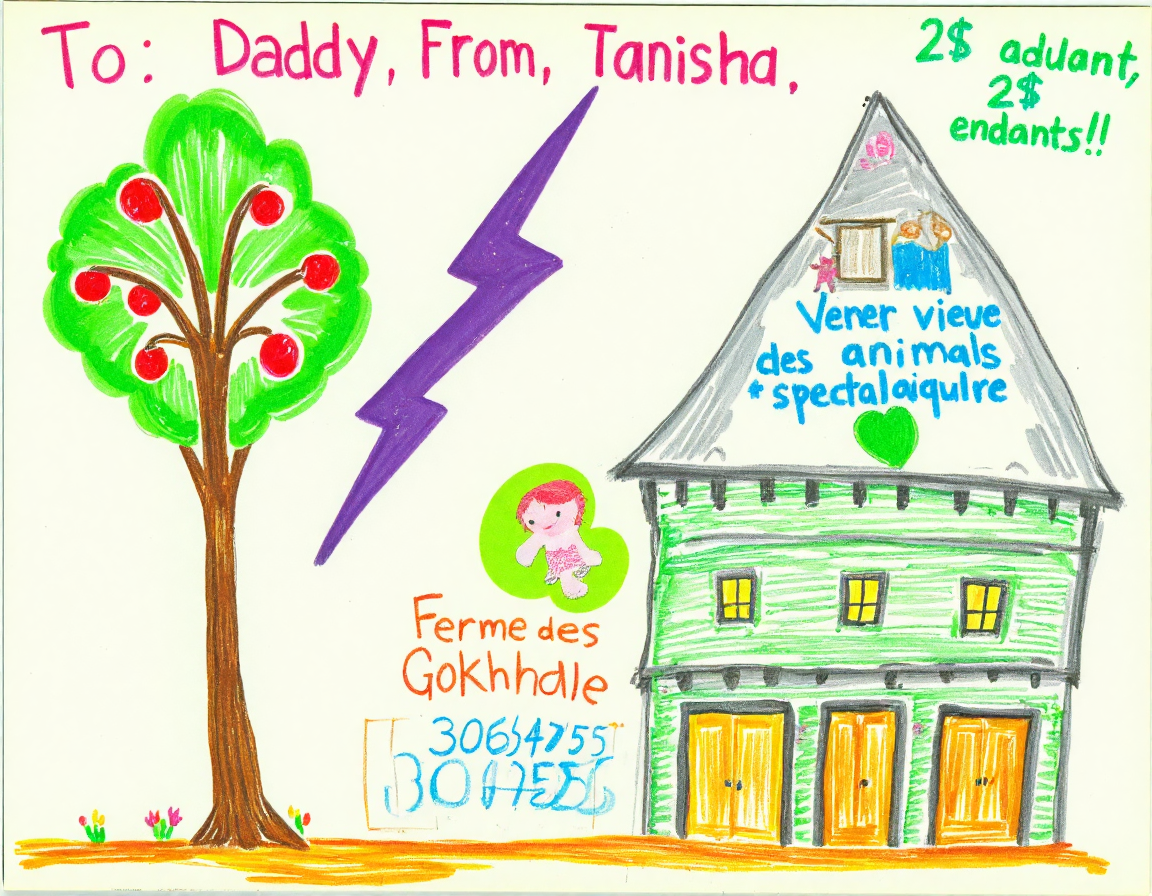 To: Daddy, From, Tanisha,
2$ aduant,
2$
endants!!
Vener vieve
des animals
+ spectalaiqulre
Ferme des
Gokhhale